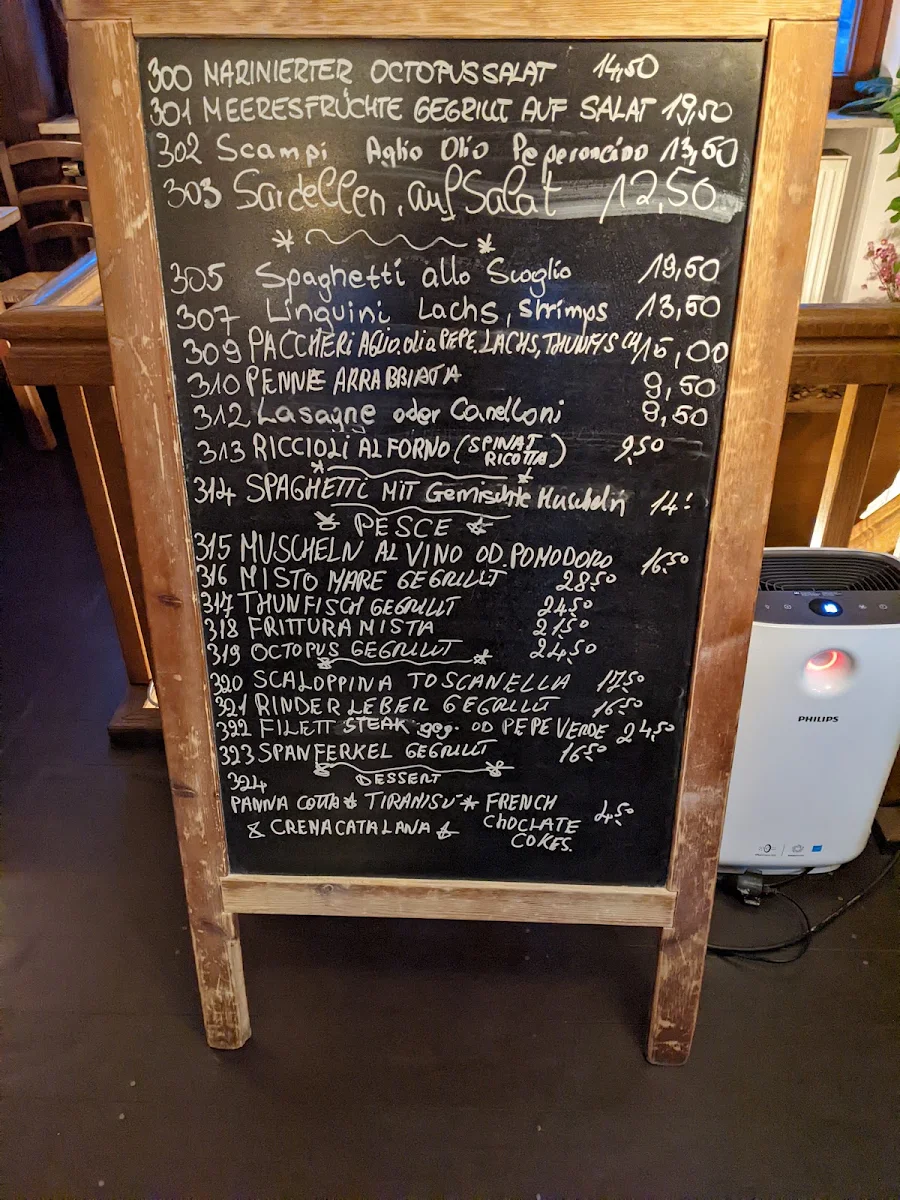 300 MARINIERTER OCTOPUSSALAT 14,50
301 MEERESFRÜCHTE GEGRILLT AUF SALAT 19,50
302 Scampi Aglio Olio Peperoncino 13,50
303 Sardellen, auf Salat 12,50
305 Spaghetti allo Scoglio 19,50
307 Linguini Lachs, shrimps 13,50
309 PACCHERI AGLIO.oLio PEPE.LACHS,THUNFISCH 15,00
310 PENNE ARRABBIATA 9,50
312 Lasagne oder Canelloni 9,50
313 RICCIOLI AL FORNO (SPINAT RICOTTA) 9,50
314 SPAGHETTi MIT Gemischte Muscheln 14:
PESCE
315 MUSCHELN AL VINO OD.POMODORO 16,50
316 MISTO MARE GEGRILLT 28,50
317 THUNFISCH GEGRILLT 24,50
318 FRITTURA MISTA 21,50
319 OCTOPUS GEGRILLT 24,50
320 SCALOPPINA TOSCANELLA 17,50
321 RINDER LEBER GEGRILLT 16,50
322 FILETT STEAK geg. OD PEPE VERDE 24,50
323 SPANFERKEL GEGRILLT 16,50
324 DESSERT
PANNA COTTA * TIRAMISU * FRENCH
CHOCLATE 4,50
CREMACATALANA COKES.
PHILIPS